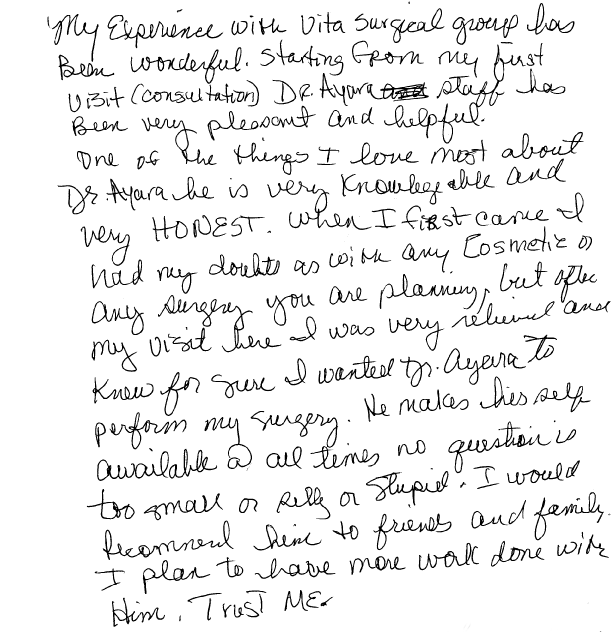 My Experience with Vita Surgical group has
Been wonderful. Starting From my first
visit (consultation) DR. Ayara staff has
Been very pleasant and helpful.
One of the things I love most about
Dr. Ayara he is very Knowlegeable and
very HONEST. When I first came I
had my doubts as with any Cosmetic or
any surgery you are planning, but after
my visit here I was very relieved and
Knew for sure I wanted Dr. Ayara to
perform my surgery. He makes his self
available @ all times no question is
too small or silly or Stupid. I would
Recommend him to friends and family.
I plan to have more work done with
Him. Trust Me.